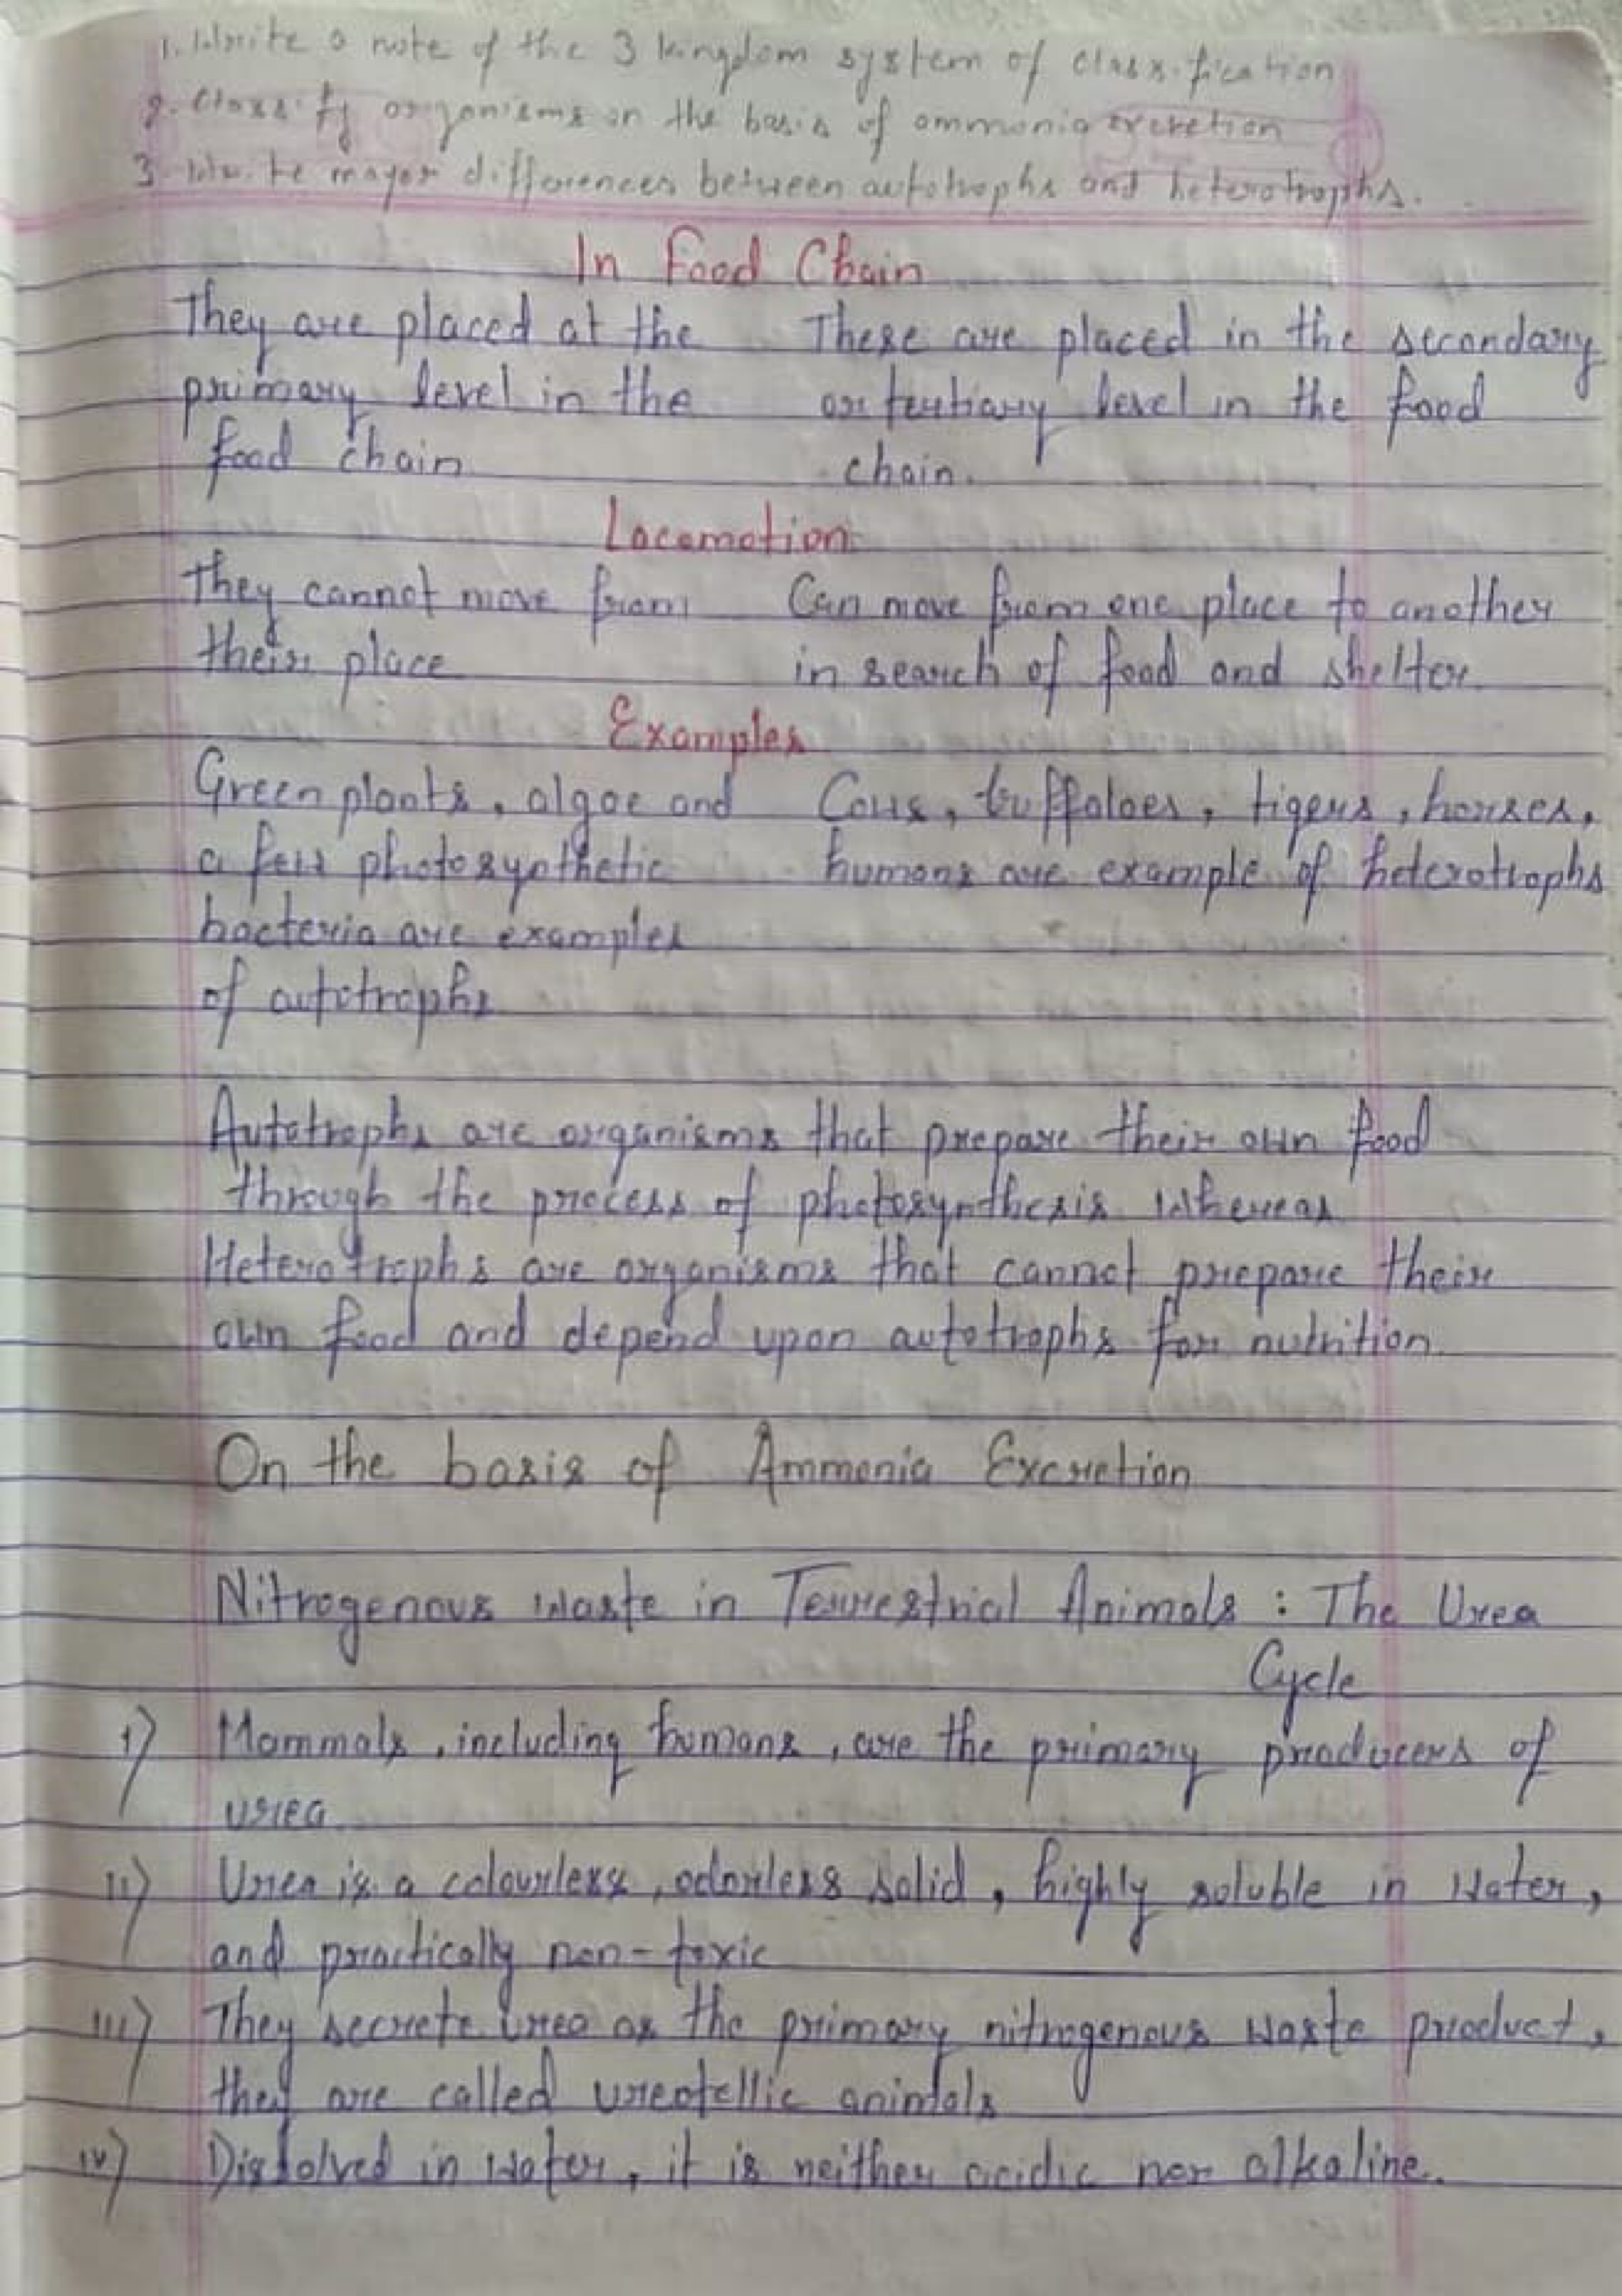 1. Write a note of the 3 kingdom system of classification
2. Classify organisms on the basis of ammonia excretion
3. Write major differences between autotrophs and heterotrophs.
In Food Chain
They are placed at the These are placed in the secondary
primary level in the or tertiary level in the food
food chain chain.
Locomotion
They cannot move from Can move from one place to another
their place in search of food and shelter
Examples
Green plants, algae and Cows, buffaloes, tigers, horses,
a few photosynthetic humans are example of heterotrophs
bacteria are examples
of autotrophs
Autotrophs are organisms that prepare their own food
through the process of photosynthesis whereas
Heterotrophs are organisms that cannot prepare their
own food and depend upon autotrophs for nutrition.
On the basis of Ammonia Excretion
Nitrogenous waste in Terrestrial Animals : The Urea
Cycle
i) Mammals, including humans, are the primary producers of
urea
ii) Urea is a colourless, odorless solid, highly soluble in water,
and practically non-toxic
iii) They secrete urea as the primary nitrogenous waste product,
they are called ureotellic animals
iv) Dissolved in water, it is neither acidic nor alkaline.